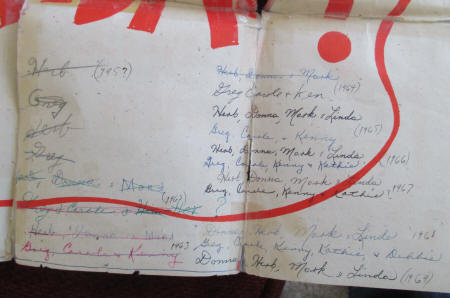 Herb (1959)
Greg
Herb
Greg
Herb, Donna & Mark
(1962)
Greg & Carole &
Herb, Donna & Mark
Greg, Carole & Kenny 1963
Herb, Donna & Mark
(1964)
Greg Carole & Ken
Herb, Donna, Mark & Linda
(1965)
Greg, Carole, & Kenny
Herb, Donna, Mark & Linda
(1966)
Greg Carole, Kenny & Kathie
Herb Donna, Mark & Linda
1967
Greg, Carole, Kenny & Kathie
Donna, Herb, Mark & Linda 1968
Greg, Carole, Kenny, Kathie, & Debbie
Donna, Herb, Mark & Linda (1969)